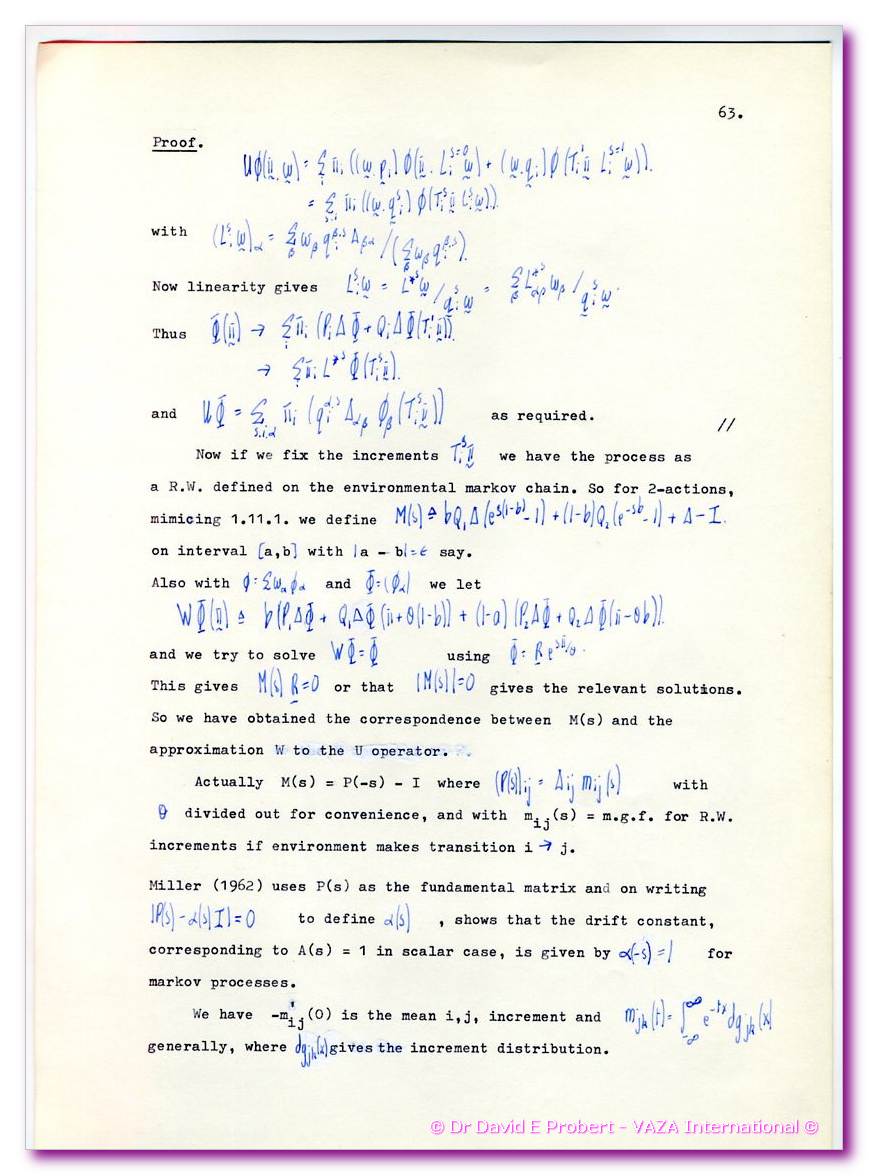 63.
Proof.
Uϕ(π̲, ω̲) = Σ πᵢ ((ω̲.p̲ᵢ) ϕ(π̲. Lᵢˢ⁼⁰ω̲) + (ω̲.q̲ᵢ) ϕ(Tᵢ¹π̲ Lᵢˢ⁼¹ω̲)).
= Σ πᵢ ((ω̲.q̲ᵢˢ) ϕ(Tᵢˢπ̲ Lᵢˢω̲)).
with (Lᵢˢω̲)_α = Σ_β ω_β qᵢ^{β,s} Δ_βα / (Σ_β ω_β qᵢ^{β,s}).
Now linearity gives Lᵢˢω̲ = L*ˢω̲ / q̲ᵢˢω̲ = Σ_β L*ˢ_αβ ω_β / q̲ᵢˢω̲.
Thus Φ̄(π̲) → Σᵢ πᵢ (PᵢΔΦ̄ + QᵢΔΦ̄(Tᵢ¹π̲)).
→ Σᵢ πᵢ L*ˢ Φ̄(Tᵢˢπ̲).
and UΦ̄ = Σ_{s,i,α} πᵢ (qᵢ^{α,s} Δ_αβ ϕ_β (Tᵢˢπ̲)) as required. //
Now if we fix the increments Tᵢˢπ̲ we have the process as
a R.W. defined on the environmental markov chain. So for 2-actions,
mimicing 1.11.1. we define M(s) ≜ bQ₁Δ(e^{s(1-b)} - 1) + (1-b)Q₂(e^{-sb} - 1) + Δ - I.
on interval [a,b] with |a - b| = ε say.
Also with ϕ = Σω_αϕ_α and Φ̄ = (ϕ_α) we let
WΦ̄(π̲) ≜ b(P₁ΔΦ̄ + Q₁ΔΦ̄(π+θ(1-b)) + (1-a)(P₂ΔΦ̄ + Q₂ΔΦ̄(π-θb)).
and we try to solve WΦ̄ = Φ̄ using Φ̄ = R̲ e^{sπ/θ}.
This gives M(s) R̲ = 0 or that |M(s)| = 0 gives the relevant solutions.
So we have obtained the correspondence between M(s) and the
approximation W to the U operator.
Actually M(s) = P(-s) - I where (P(s))ᵢⱼ = Δᵢⱼ mᵢⱼ(s) with
θ divided out for convenience, and with mᵢⱼ(s) = m.g.f. for R.W.
increments if environment makes transition i → j.
Miller (1962) uses P(s) as the fundamental matrix and on writing
|P(s) - α(s)I| = 0 to define α(s) , shows that the drift constant,
corresponding to A(s) = 1 in scalar case, is given by α(-s) = 1 for
markov processes.
We have -m'ᵢⱼ(0) is the mean i,j, increment and m_jk(t) = ∫_{-∞}^{∞} e^{-tx} dg_jk(x)
generally, where dg_jk(x) gives the increment distribution.
© Dr David E Probert – VAZA International ©